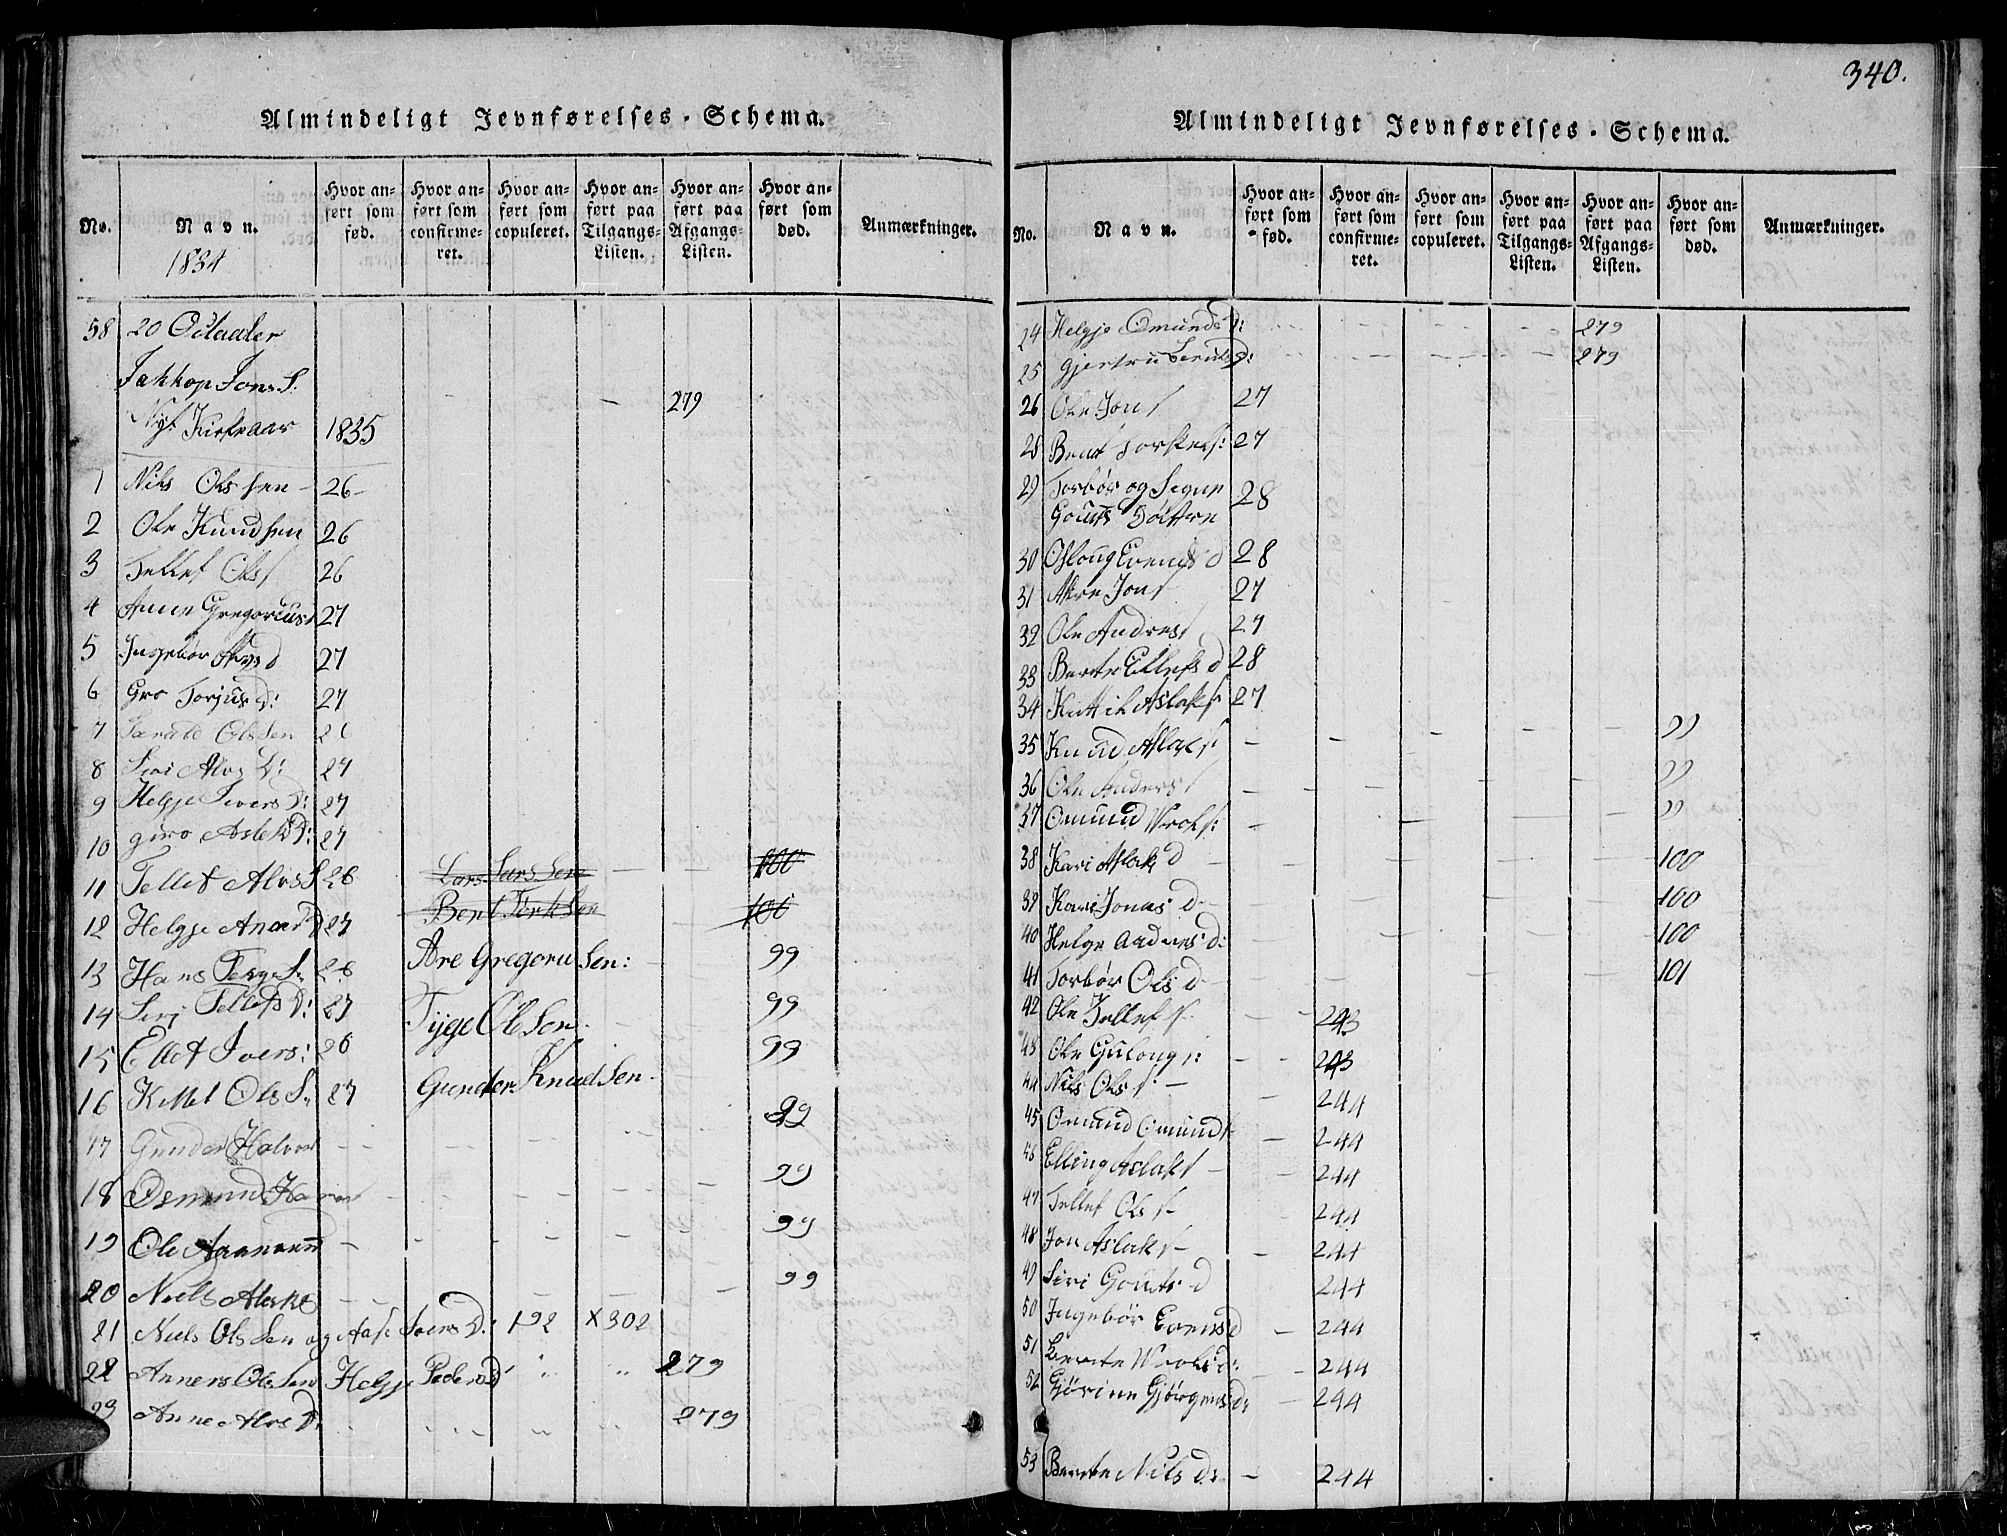 340.
Almindeligt Jevnførelses-Schema.
No.
Navn.
1834
Hvor anført som fød.
Hvor anført som confirmeret.
Hvor anført som copuleret.
Hvor anført paa Tilgangs-Listen.
Hvor anført paa Afgangs-Listen.
Hvor anført som død.
Anmærkninger.
58 20 Octaaler
Jakkop Jons S. 279
Nyt Kirkeaar 1835
1 Nils Olssen 26
2 Ole Knudsen 26
3 Tellef Ols 26
4 Anne Gregorius 27
5 Ingebor d 27
6 Gro Torjus D: 27
7 Olssen 26
8 Siri Alvs D: 27
9 Helgje Ivers D: 27
10 giro Aslek D: 27
11 Tellef Alvs S 26 Lars Lars Sen 100
12 Helgje Aner D 27 Bent Tork Sen 100
13 Hans Terge S. 26 Are Gregoru Sen: 99
14 Siri Tellefs D: 27 Tyge Ol Sen. 99
15 Ellef Ivers: 26 99
16 Kittel Ols S. 27 Gunder Knud Sen. 99
17 Gunder Halvor
18 Osmund 99
19 Ole 99
20 Niels 99
21 Niels Ols Sen og Aase Ivers D: 192 X 302
22 Anners Ols Sen Helgje Peders D 279
23 Anne Alvs D. 279
Almindeligt Jevnførelses-Schema.
No.
Navn.
Hvor anført som fød.
Hvor anført som confirmeret.
Hvor anført som copuleret.
Hvor anført paa Tilgangs-Listen.
Hvor anført paa Afgangs-Listen.
Hvor anført som død.
Anmærkninger.
24 Helgje Omunds D: 279
25 Gjertru D: 279
26 Ole Jons 27
28 Bent Torkels: 27
29 Torbør og Signe 28
Gouts Døttre
30 Osloug Evens d 28
31 Are Jons 27
32 Ole Andres 27
33 Berte Ellefs d 28
34 Kittil Aslaks 27
35 Knud Aslaks: 99
36 Ole Anders 99
37 Omund Wrols: 99
38 Kari Aslak d 100
39 Kari Jonas d 100
40 Helge Aadnes d: 100
41 Torbør Ols d 101
42 Ole Tellefs 243
43 Ole Gulougs: 243
44 Nils Ols 244
45 Omund Omunds 244
46 Elling Aslaks 244
47 Tellef Ols 244
48 Jon Aslaks 244
49 Siri Gouts d 244
50 Ingebør Evens d 244
51 Berte Wrols d: 244
52 Gjørine Gjørgens d: 244
53 Berte Nils d: 244